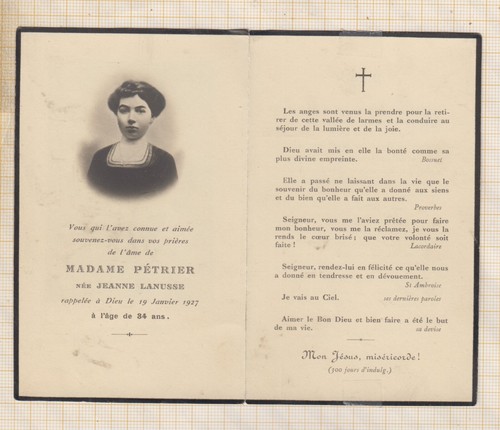 Vous qui l'avez connue et aimée
souvenez-vous dans vos prières
de l'âme de
MADAME PÉTRIER
NÉE JEANNE LANUSSE
rappelée à Dieu le 19 Janvier 1927
à l'âge de 34 ans.
Les anges sont venus la prendre pour la reti-
rer de cette vallée de larmes et la conduire au
séjour de la lumière et de la joie.
Dieu avait mis en elle la bonté comme sa
plus divine empreinte. Bossuet
Elle a passé ne laissant dans la vie que le
souvenir du bonheur qu'elle a donné aux siens
et du bien qu'elle a fait aux autres.
Proverbes
Seigneur, vous me l'aviez prêtée pour faire
mon bonheur, vous me la réclamez, je vous la
rends le cœur brisé ; que votre volonté soit
faite ! Lacordaire
Seigneur, rendez-lui en félicité ce qu'elle nous
a donné en tendresse et en dévouement.
St Ambroise
Je vais au Ciel. ses dernières paroles
Aimer le Bon Dieu et bien faire a été le but
de ma vie. sa devise
Mon Jésus, miséricorde !
(300 jours d'indulg.)